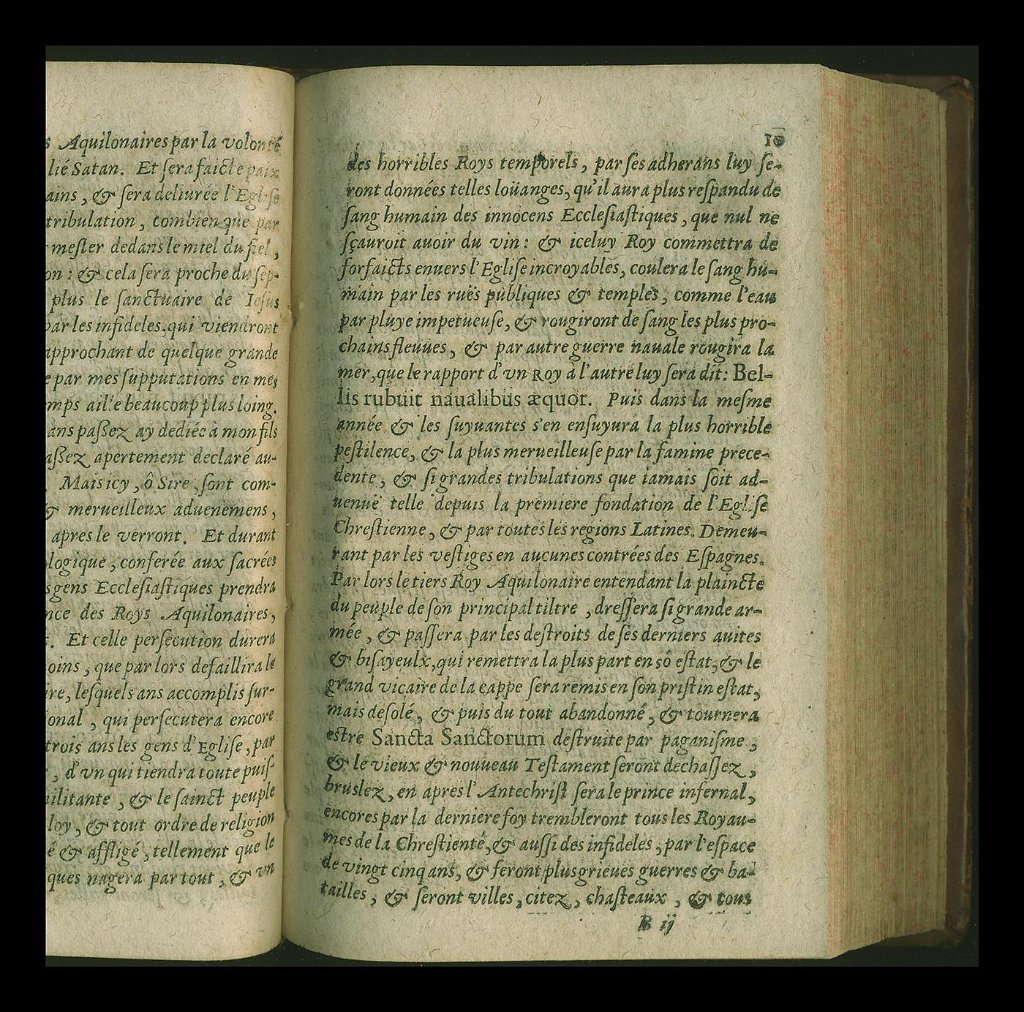 Aquilonaires par la volonté
lié Satan. Et sera faicte paix
ains, & sera deliurée l'Eglise
tribulation, combien que par
mesler dedans le miel du fiel,
on : & cela sera proche du sep-
plus le sanctuaire de Iesus
par les infideles qui viendront
approchant de quelque grande
par mes supputations en mes
mps ail'e beaucoup plus loing.
ans passez ay dediée à mon fils
assez apertement declaré au-
Mais icy, ô Sire, sont com-
& merueilleux aduenemens,
apres le verront. Et durant
logique, conferée aux sacrées
gens Ecclesiastiques prendra
nce des Roys Aquilonaires,
. Et celle persecution durera
oins, que par lors defaillira le
re, lesquels ans accomplis sur-
onal, qui persecutera encore
trois ans les gens d'Eglise, par
, d'vn qui tiendra toute puis-
militante, & le sainct peuple
loy, & tout ordre de religion
é & affligé, tellement que le
ques nagera par tout, & vn
10
des horribles Roys temporels, par ses adherans luy se-
ront données telles loüanges, qu'il aura plus respandu de
sang humain des innocens Ecclesiastiques, que nul ne
sçauroit auoir du vin : & iceluy Roy commettra de
forfaicts enuers l'Eglise incroyables, coulera le sang hu-
main par les ruës publiques & temples, comme l'eau
par pluye impetueuse, & rougiront de sang les plus pro-
chains fleuues, & par autre guerre nauale rougira la
mer, que le rapport d'vn Roy à l'autre luy sera dit: Bel-
lis rubuit naualibus æquor. Puis dans la mesme
année & les suyuantes s'en ensuyura la plus horrible
pestilence, & la plus merueilleuse par la famine prece-
dente, & si grandes tribulations que iamais soit ad-
uenuë telle depuis la premiere fondation de l'Eglise
Chrestienne, & par toutes les regions Latines. Demeu-
rant par les vestiges en aucunes contrées des Espagnes.
Par lors le tiers Roy Aquilonaire entendant la plaincte
du peuple de son principal tiltre, dressera si grande ar-
mée, & passera par les destroits de ses derniers auites
& bisayeulx, qui remettra la plus part en sō estat, & le
grand vicaire de la cappe sera remis en son pristin estat,
mais desolé, & puis du tout abandonné, & tournera
estre Sancta Sanctorum destruite par paganisme,
& le vieux & nouueau Testament seront dechassez,
bruslez, en apres l'Antechrist sera le prince infernal,
encores par la derniere foy trembleront tous les Royau-
mes de la Chrestienté, & aussi des infideles, par l'espace
de vingt cinq ans, & feront plus grieues guerres & ba-
tailles, & seront villes, citez, chasteaux, & tous
B ij